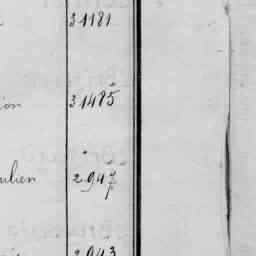 31181
ion 31485
ulien 2947
2943